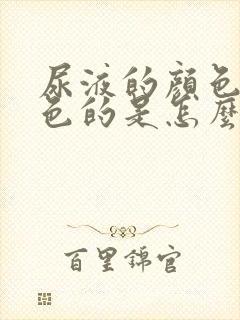 尿液的顏色
色的是怎麼
百里錦官